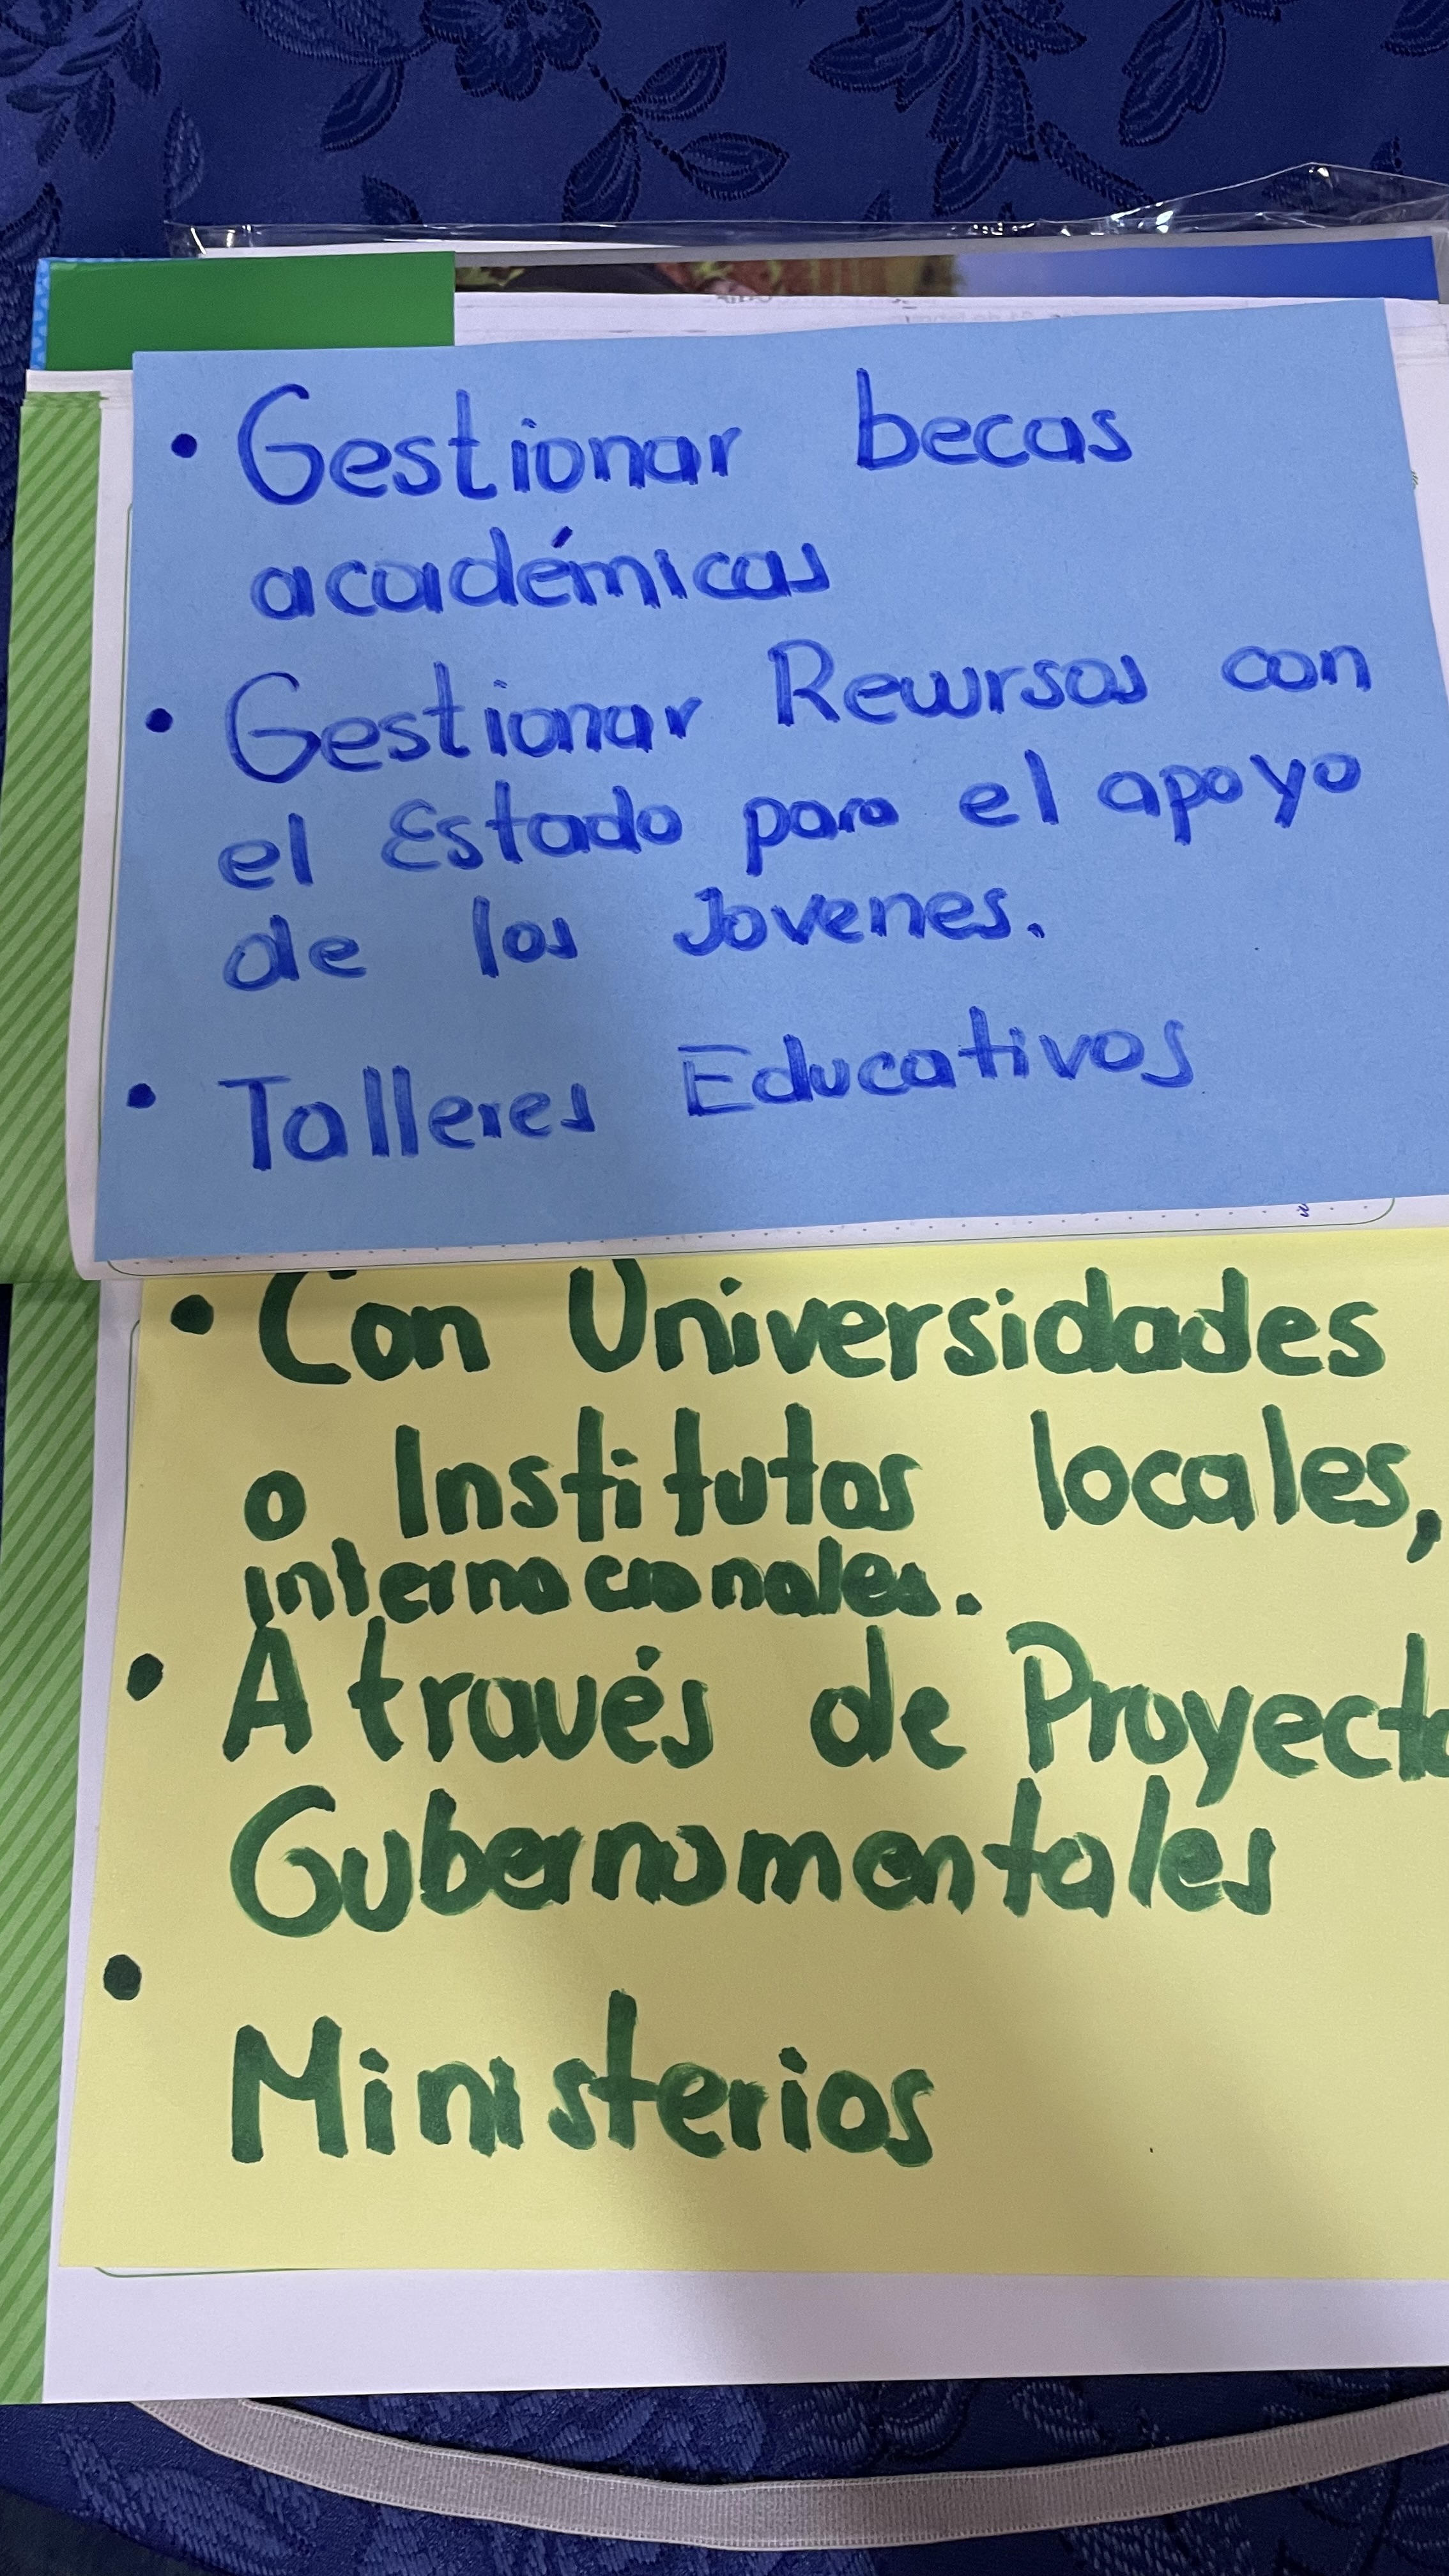 • Gestionar becas
académicas
• Gestionar Recursos con
el Estado para el apoyo
de los Jovenes.
• Talleres Educativos
• Con Universidades
o Institutos locales,
internacionales.
• A través de Proyecto
Gubernamentales
• Ministerios